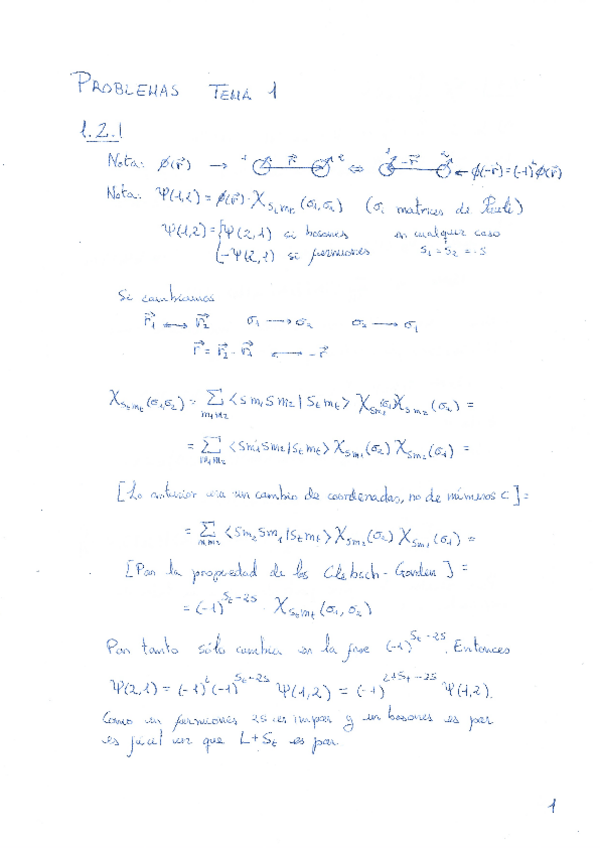 PROBLEMAS TEMA 1
1.2.1
Nota: φ(r⃗) → 1 r⃗ 2 ⇔ 2 -r⃗ ← φ(-r⃗)=(-1)^L φ(r⃗)
Nota: Ψ(1,2) = φ(r⃗)·χ_{S_t m_t}(σ₁,σ₂) (σ_i matrices de Pauli)
Ψ(1,2) = { Ψ(2,1) si bosones en cualquier caso
{ -Ψ(2,1) si fermiones S₁ = S₂ = S
Si cambiamos
r⃗₁ ⟷ r⃗₂ σ₁ → σ₂ σ₂ → σ₁
r⃗ = r⃗₁ - r⃗₂ ⟵ -r⃗
χ_{S_t m_t}(σ₁,σ₂) = Σ_{m₁m₂} <S m₁ S m₂ | S_t m_t> χ_{Sm₁}(σ₁) χ_{Sm₂}(σ₂) =
= Σ_{m₁m₂} <S m₁ S m₂ | S_t m_t> χ_{Sm₁}(σ₂) χ_{Sm₂}(σ₁) =
[Lo anterior era un cambio de coordenadas, no de números C] =
= Σ_{m₁m₂} <S m₂ S m₁ | S_t m_t> χ_{Sm₂}(σ₂) χ_{Sm₁}(σ₁) =
[Por la propiedad de los Clebsch-Gordan] =
= (-1)^{S_t-2S} · χ_{S_t m_t}(σ₁,σ₂)
Por tanto sólo cambia en la fase (-1)^{S_t-2S}. Entonces
Ψ(2,1) = (-1)^L (-1)^{S_t-2S} Ψ(1,2) = (-1)^{L+S_t-2S} Ψ(1,2).
Como en fermiones 2S es impar y en bosones es par
es fácil ver que L+S_t es par.
1